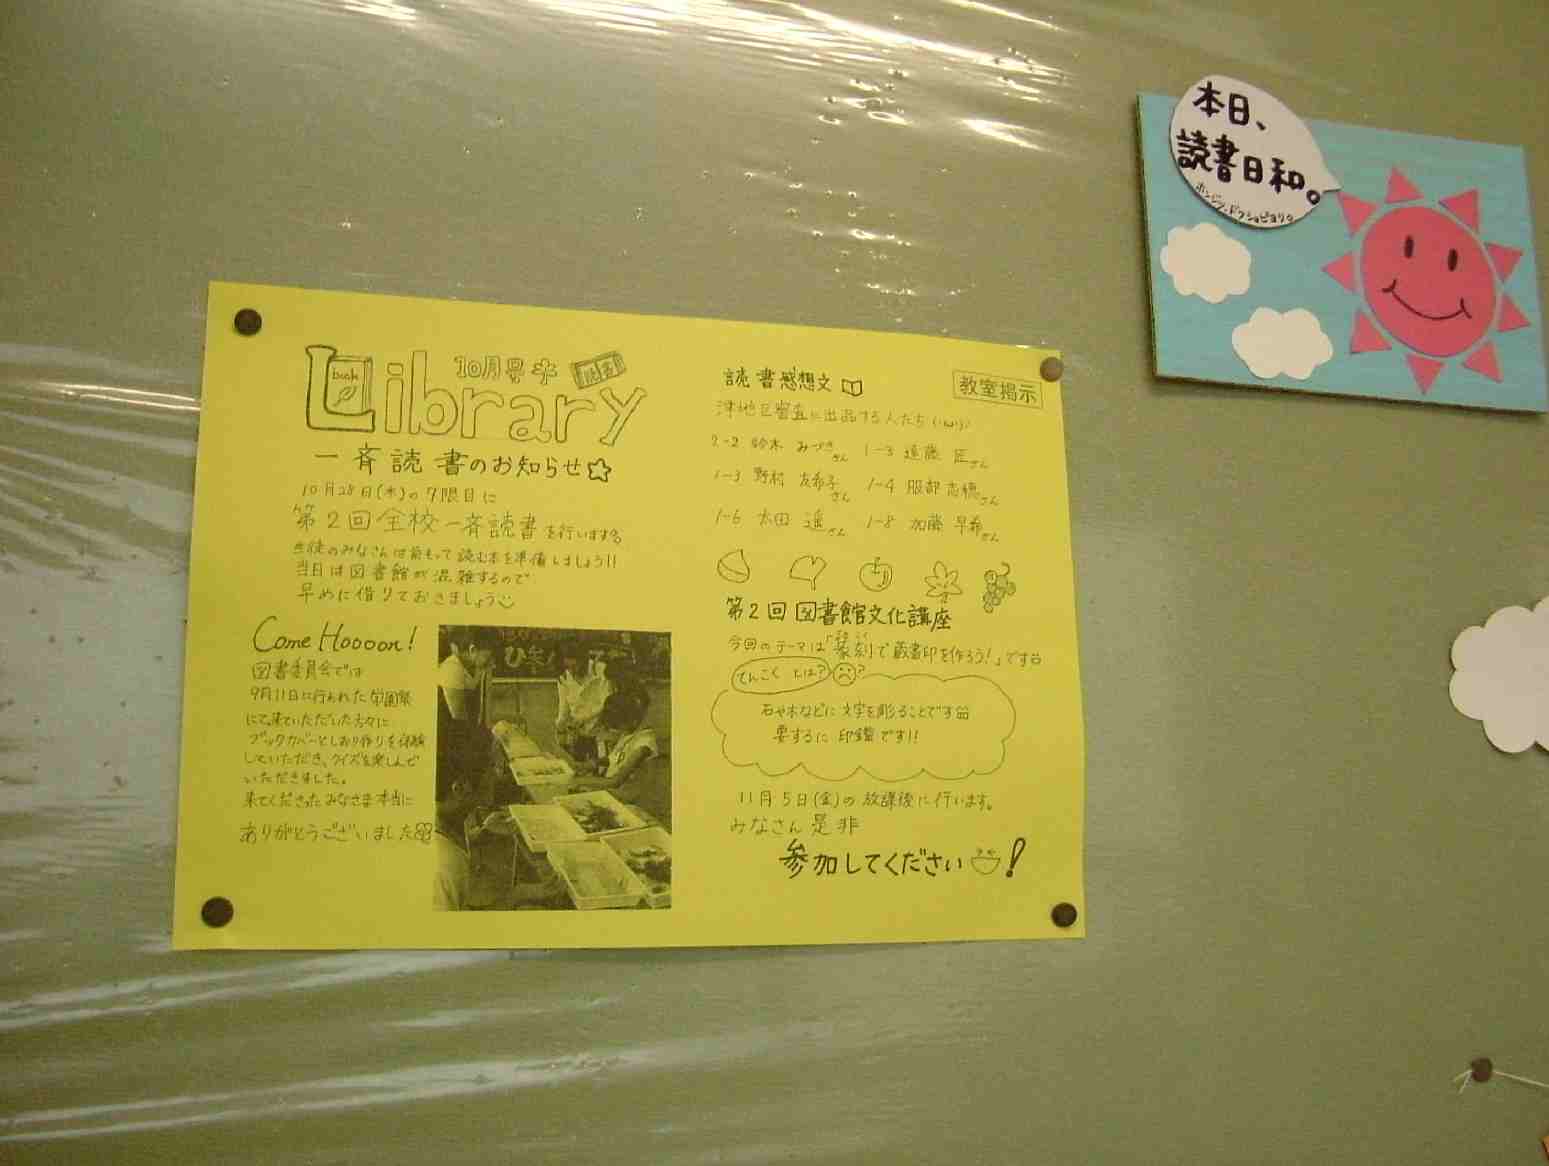 Library
book
10月号
読書
一斉読書のお知らせ☆
10月28日(木)の7限目に
第2回全校一斉読書を行います
生徒のみなさんは前もって読む本を準備しましょう!!
当日は図書館が混雑するので
早めに借りておきましょう
Come Hoooon!
図書委員会では
9月11日に行われた学園祭
にて来ていただいた方々に
ブックカバーとしおり作りを体験
していただき、クイズを楽しんで
いただきました。
来てくださったみなさま本当に
ありがとうございました
読書感想文
教室掲示
津地区審査に出品する人たち
2-2 鈴木 みづきさん 1-3 遠藤 匠さん
1-3 野村 友希子さん 1-4 服部 志穂さん
1-6 太田 遥さん 1-8 加藤 早希さん
第2回図書館文化講座
今回のテーマは「篆刻で蔵書印を作ろう!」です
てんこくとは??
石や木などに文字を彫ることです
要するに印鑑です!!
11月5日(金)の放課後に行います。
みなさん是非
参加してください!
本日、
読書日和。
ホンジツ、ドクショビヨリ。